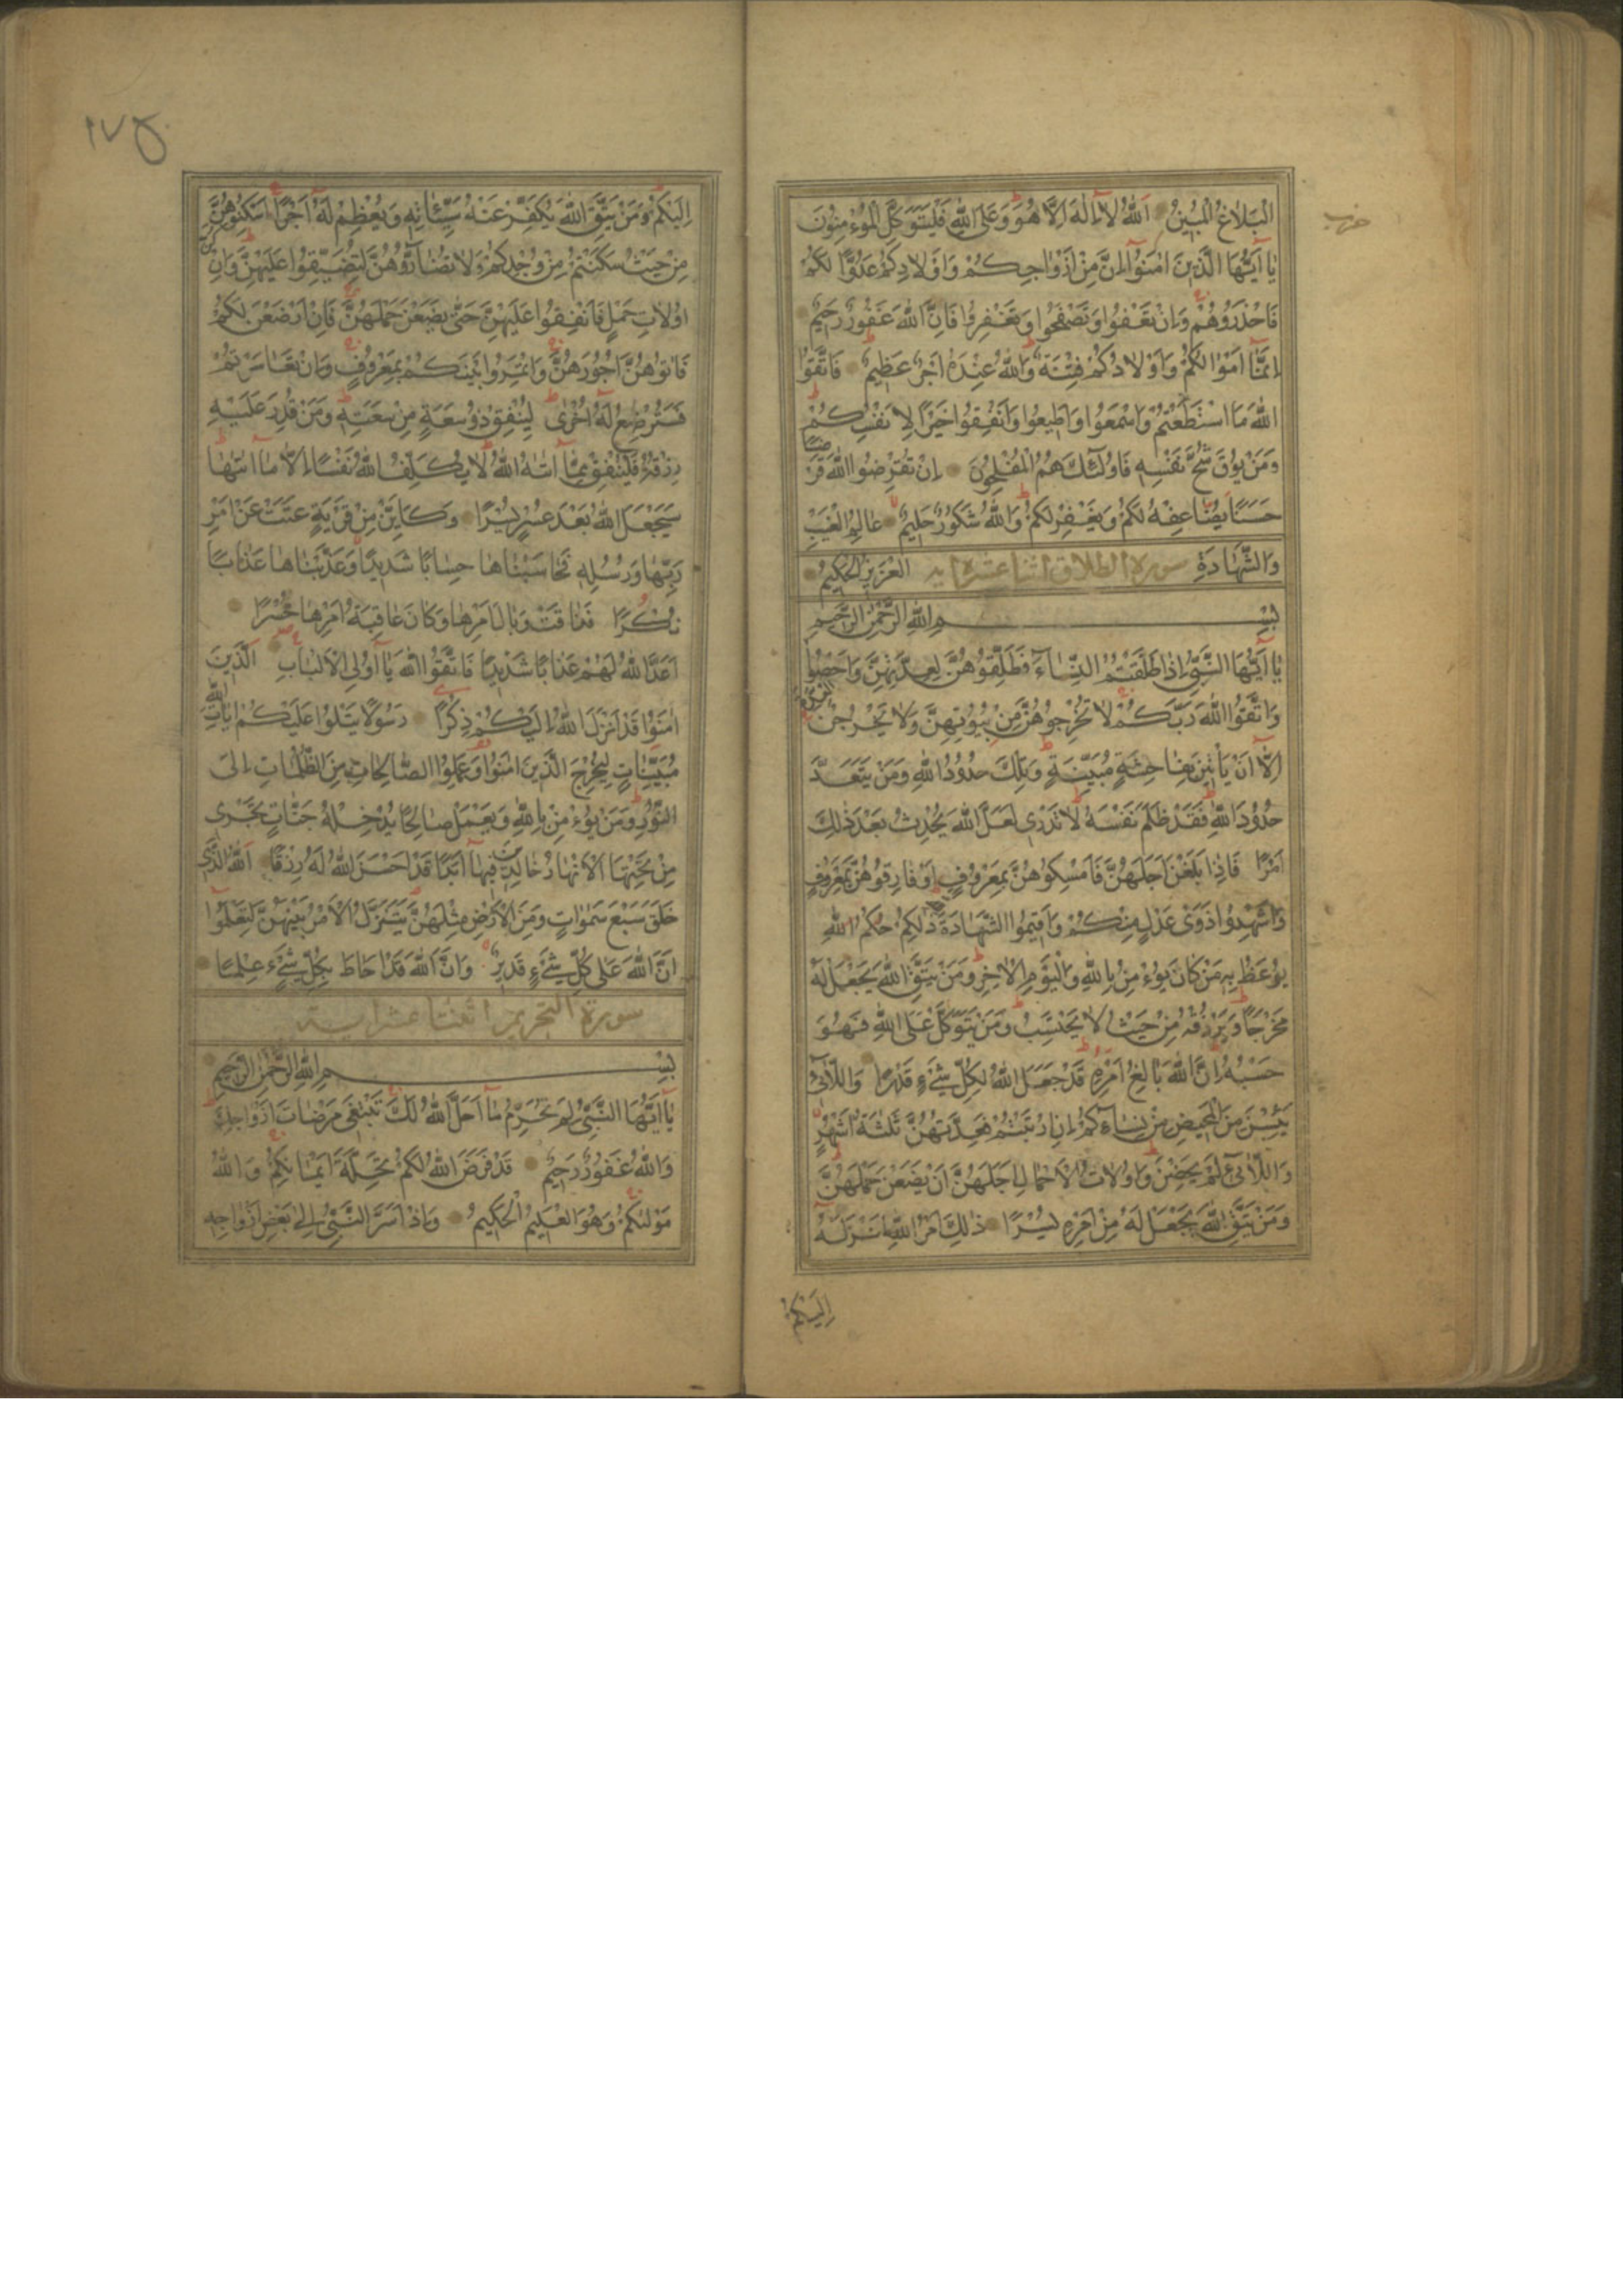 حزب
الْبَلَاغُ الْمُبِينُ اَللّٰهُ لَا اِلٰهَ اِلَّا هُوَ وَعَلَى اللّٰهِ فَلْيَتَوَكَّلِ الْمُؤْمِنُونَ
يَا اَيُّهَا الَّذِينَ اٰمَنُوا اِنَّ مِنْ اَزْوَاجِكُمْ وَاَوْلَادِكُمْ عَدُوًّا لَكُمْ
فَاحْذَرُوهُمْ وَاِنْ تَعْفُوا وَتَصْفَحُوا وَتَغْفِرُوا فَاِنَّ اللّٰهَ غَفُورٌ رَحِيمٌ
اِنَّمَا اَمْوَالُكُمْ وَاَوْلَادُكُمْ فِتْنَةٌ وَاللّٰهُ عِنْدَهُ اَجْرٌ عَظِيمٌ فَاتَّقُوا
اللّٰهَ مَا اسْتَطَعْتُمْ وَاسْمَعُوا وَاَطِيعُوا وَاَنْفِقُوا خَيْرًا لِاَنْفُسِكُمْ
وَمَنْ يُوقَ شُحَّ نَفْسِهِ فَاُولٰئِكَ هُمُ الْمُفْلِحُونَ اِنْ تُقْرِضُوا اللّٰهَ قَرْضًا
حَسَنًا يُضَاعِفْهُ لَكُمْ وَيَغْفِرْ لَكُمْ وَاللّٰهُ شَكُورٌ حَلِيمٌ عَالِمُ الْغَيْبِ
وَالشَّهَادَةِ سورة الطلاق اثنا عشرة اية الْعَزِيزُ الْحَكِيمُ
بِسْمِ اللّٰهِ الرَّحْمٰنِ الرَّحِيمِ
يَا اَيُّهَا النَّبِيُّ اِذَا طَلَّقْتُمُ النِّسَاءَ فَطَلِّقُوهُنَّ لِعِدَّتِهِنَّ وَاَحْصُوا الْعِدَّةَ
وَاتَّقُوا اللّٰهَ رَبَّكُمْ لَا تُخْرِجُوهُنَّ مِنْ بُيُوتِهِنَّ وَلَا يَخْرُجْنَ
اِلَّا اَنْ يَاْتِينَ بِفَاحِشَةٍ مُبَيِّنَةٍ وَتِلْكَ حُدُودُ اللّٰهِ وَمَنْ يَتَعَدَّ
حُدُودَ اللّٰهِ فَقَدْ ظَلَمَ نَفْسَهُ لَا تَدْرِى لَعَلَّ اللّٰهَ يُحْدِثُ بَعْدَ ذٰلِكَ
اَمْرًا فَاِذَا بَلَغْنَ اَجَلَهُنَّ فَاَمْسِكُوهُنَّ بِمَعْرُوفٍ اَوْ فَارِقُوهُنَّ بِمَعْرُوفٍ
وَاَشْهِدُوا ذَوَىْ عَدْلٍ مِنْكُمْ وَاَقِيمُوا الشَّهَادَةَ ذٰلِكُمْ حُكْمُ اللّٰهِ
يُوعَظُ بِهِ مَنْ كَانَ يُؤْمِنُ بِاللّٰهِ وَالْيَوْمِ الْاٰخِرِ وَمَنْ يَتَّقِ اللّٰهَ يَجْعَلْ لَهُ
مَخْرَجًا وَيَرْزُقْهُ مِنْ حَيْثُ لَا يَحْتَسِبُ وَمَنْ يَتَوَكَّلْ عَلَى اللّٰهِ فَهُوَ
حَسْبُهُ اِنَّ اللّٰهَ بَالِغُ اَمْرِهِ قَدْ جَعَلَ اللّٰهُ لِكُلِّ شَيْءٍ قَدْرًا وَاللَّائِى
يَئِسْنَ مِنَ الْمَحِيضِ مِنْ نِسَائِكُمْ اِنِ ارْتَبْتُمْ فَعِدَّتُهُنَّ ثَلٰثَةُ اَشْهُرٍ
وَاللَّائِى لَمْ يَحِضْنَ وَاُولَاتُ الْاَحْمَالِ اَجَلُهُنَّ اَنْ يَضَعْنَ حَمْلَهُنَّ
وَمَنْ يَتَّقِ اللّٰهَ يَجْعَلْ لَهُ مِنْ اَمْرِهِ يُسْرًا ذٰلِكَ اَمْرُ اللّٰهِ اَنْزَلَهُ
اِلَيْكُمْ
اِلَيْكُمْ وَمَنْ يَتَّقِ اللّٰهَ يُكَفِّرْ عَنْهُ سَيِّئَاتِهِ وَيُعْظِمْ لَهُ اَجْرًا اَسْكِنُوهُنَّ
مِنْ حَيْثُ سَكَنْتُمْ مِنْ وُجْدِكُمْ وَلَا تُضَارُّوهُنَّ لِتُضَيِّقُوا عَلَيْهِنَّ وَاِنْ كُنَّ
اُولَاتِ حَمْلٍ فَاَنْفِقُوا عَلَيْهِنَّ حَتّٰى يَضَعْنَ حَمْلَهُنَّ فَاِنْ اَرْضَعْنَ لَكُمْ
فَاٰتُوهُنَّ اُجُورَهُنَّ وَاْتَمِرُوا بَيْنَكُمْ بِمَعْرُوفٍ وَاِنْ تَعَاسَرْتُمْ
فَسَتُرْضِعُ لَهُ اُخْرٰى لِيُنْفِقْ ذُو سَعَةٍ مِنْ سَعَتِهِ وَمَنْ قُدِرَ عَلَيْهِ
رِزْقُهُ فَلْيُنْفِقْ مِمَّا اٰتٰهُ اللّٰهُ لَا يُكَلِّفُ اللّٰهُ نَفْسًا اِلَّا مَا اٰتٰهَا
سَيَجْعَلُ اللّٰهُ بَعْدَ عُسْرٍ يُسْرًا وَكَاَيِّنْ مِنْ قَرْيَةٍ عَتَتْ عَنْ اَمْرِ
رَبِّهَا وَرُسُلِهِ فَحَاسَبْنَاهَا حِسَابًا شَدِيدًا وَعَذَّبْنَاهَا عَذَابًا
نُكْرًا فَذَاقَتْ وَبَالَ اَمْرِهَا وَكَانَ عَاقِبَةُ اَمْرِهَا خُسْرًا
اَعَدَّ اللّٰهُ لَهُمْ عَذَابًا شَدِيدًا فَاتَّقُوا اللّٰهَ يَا اُولِى الْاَلْبَابِ الَّذِينَ
اٰمَنُوا قَدْ اَنْزَلَ اللّٰهُ اِلَيْكُمْ ذِكْرًا رَسُولًا يَتْلُوا عَلَيْكُمْ اٰيَاتِ اللّٰهِ
مُبَيِّنَاتٍ لِيُخْرِجَ الَّذِينَ اٰمَنُوا وَعَمِلُوا الصَّالِحَاتِ مِنَ الظُّلُمَاتِ اِلَى
النُّورِ وَمَنْ يُؤْمِنْ بِاللّٰهِ وَيَعْمَلْ صَالِحًا يُدْخِلْهُ جَنَّاتٍ تَجْرِى
مِنْ تَحْتِهَا الْاَنْهَارُ خَالِدِينَ فِيهَا اَبَدًا قَدْ اَحْسَنَ اللّٰهُ لَهُ رِزْقًا اَللّٰهُ الَّذِى
خَلَقَ سَبْعَ سَمٰوَاتٍ وَمِنَ الْاَرْضِ مِثْلَهُنَّ يَتَنَزَّلُ الْاَمْرُ بَيْنَهُنَّ لِتَعْلَمُوا
اَنَّ اللّٰهَ عَلٰى كُلِّ شَيْءٍ قَدِيرٌ وَاَنَّ اللّٰهَ قَدْ اَحَاطَ بِكُلِّ شَيْءٍ عِلْمًا
سورة التحريم اثنتا عشر اية
بِسْمِ اللّٰهِ الرَّحْمٰنِ الرَّحِيمِ
يَا اَيُّهَا النَّبِيُّ لِمَ تُحَرِّمُ مَا اَحَلَّ اللّٰهُ لَكَ تَبْتَغِى مَرْضَاتَ اَزْوَاجِكَ
وَاللّٰهُ غَفُورٌ رَحِيمٌ قَدْ فَرَضَ اللّٰهُ لَكُمْ تَحِلَّةَ اَيْمَانِكُمْ وَاللّٰهُ
مَوْلٰيكُمْ وَهُوَ الْعَلِيمُ الْحَكِيمُ وَاِذْ اَسَرَّ النَّبِيُّ اِلٰى بَعْضِ اَزْوَاجِهِ